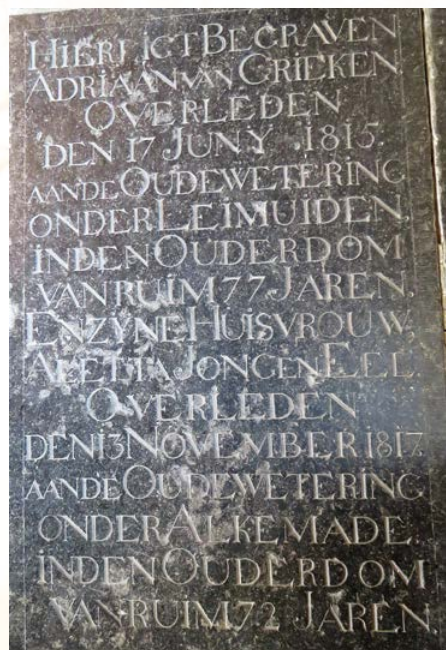 HIER LIGT BEGRAVEN
ADRIAAN VAN GRIEKEN
OVERLEDEN
DEN 17 JUNY 1815.
AANDE OUDEWETERING
ONDER LEIMUIDEN.
INDEN OUDERDOM
VAN RUIM 77 JAREN.
EN ZYNE HUISVROUW.
ALETTA JONGENEEL.
OVERLEDEN
DEN 13 NOVEMBER 1817.
AANDE OUDEWETERING
ONDER ALKEMADE.
INDEN OUDERDOM
VAN RUIM 72 JAREN